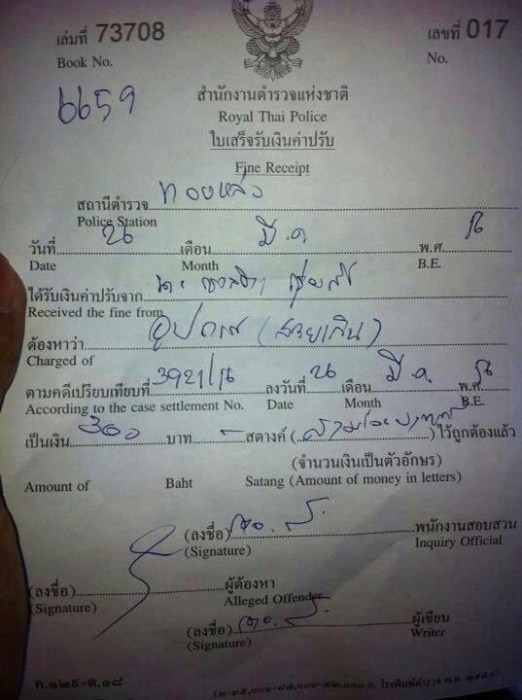 เล่มที่ 73708 เลขที่ 017
Book No. No.
6659
สำนักงานตำรวจแห่งชาติ
Royal Thai Police
ใบเสร็จรับเงินค่าปรับ
Fine Receipt
สถานีตำรวจ ทองหล่อ
Police Station
วันที่ เดือน มี.ค. พ.ศ.
Date Month B.E.
ได้รับเงินค่าปรับจาก
Received the fine from
ต้องหาว่า
Charged of
ตามคดีเปรียบเทียบที่ ลงวันที่ เดือน มี.ค. พ.ศ.
According to the case settlement No. Date Month B.E.
เป็นเงิน 300 บาท - สตางค์ (สามร้อยบาท) ไว้ถูกต้องแล้ว
(จำนวนเงินเป็นตัวอักษร)
Amount of Baht Satang (Amount of money in letters)
(ลงชื่อ) พนักงานสอบสวน
(Signature) Inquiry Official
(ลงชื่อ) ผู้ต้องหา
(Signature) Alleged Offender
(ลงชื่อ) ผู้เขียน
(Signature) Writer